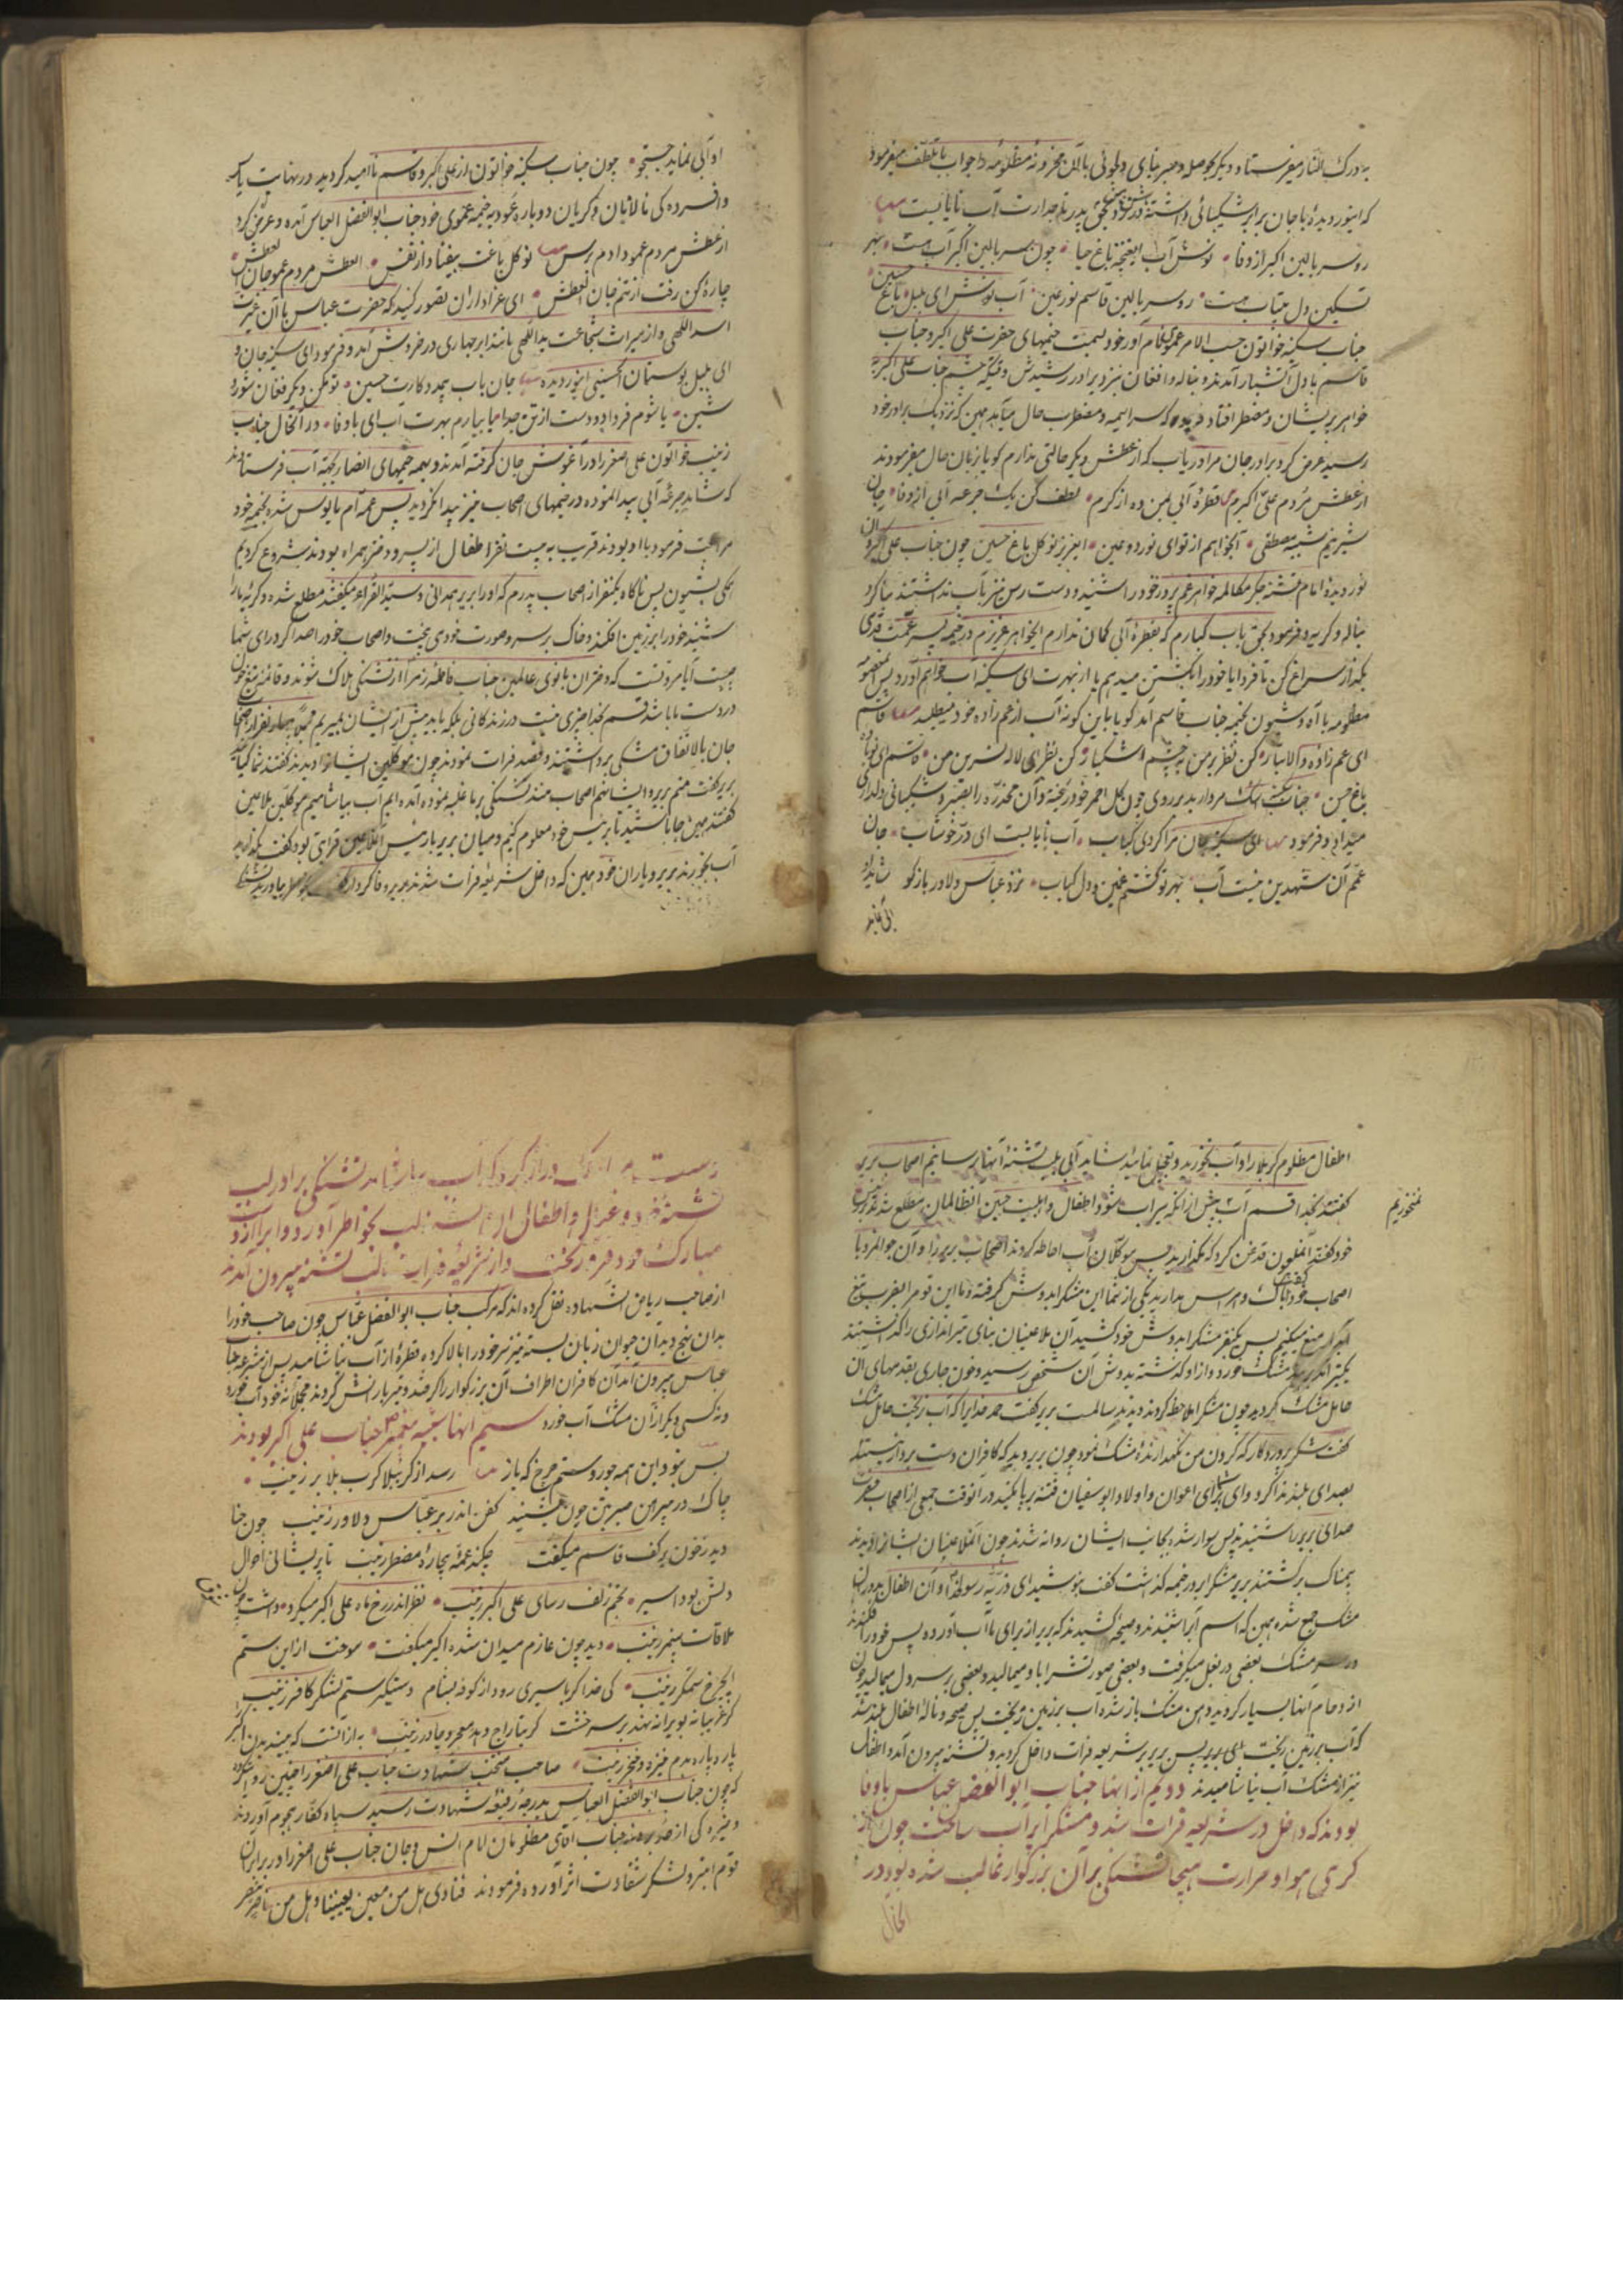 به درک النار میفرستاد و دیگر حوصله و صبر بنای دلجوئی با آن محزونه مظلومه را جواب با تلطف میفرمود
که اینور دیده باجان برابر شکیبائی داشته پدر تاجدارت آب نایابست
رو سر بالین اکبر از وفا نوش آب ایغنچه باغ حیا چون سر بالین اکبر آب هست بهر
تسکین دل بیتاب هست رو سر بالین قاسم نور عین آب نوش ای بلبل باغ حسین
جناب سکینه خواتون حسب الامر عموی نام آور خود بسمت خیمهای حضرت علی اکبر و جناب
قاسم با دل آتشبار آمدند و بناله و افغان نزد برادر رشیدش وقتیکه چشم جناب علی اکبر به
خواهر پریشان و مضطر افتاد فرموده که سراسیمه و مضطرب حال میآید همین که نزدیک برادر خود
رسید عرض کرد برادر جان مرا دریاب که از عطش دیگر حالتی ندارم گویا زبان حال میفرمودند
از عطش مردم علی اکبرم قطرهٔ آبی بمن ده از کرم لطف کن یک جرعه آبی از وفا جان
شیرینم شبیه مصطفی آبخواهم از تو ای نور دو عین ایعزیز نوگل باغ حسین چون جناب علی اکبر آن
نور دیدهٔ امام تشنه جگر مکالمه خواهر غم پرور خود را شنید و دست رس نیز بآب نداشتند بنا کرد
بناله و گریه و فرمود بحق باب کبارم که بقطرهٔ آبی گمان ندارم ایخواهر عزیزم در خیمه پسر عمت قدری
بگذار سراغ کن تا فردا یا خود را بکشتن میدهم یا از بهرت ای سکینه آب خواهم آورد پس آنمعصومهٔ
مظلومه با آه و شیون بخیمه جناب قاسم آمد گویا باین گونه آب از عم زاده خود میطلبد قاسم
ای عم زادهٔ والاتبار کن نظر بر من به چشم اشکبار کن نظر ای لاله نسرین من قاسم ای نوباوهٔ
باغ حسن جناب اشک مروارید بر روی چون گل احمر خود ریخته و آن مخدره را بصبر و شکیبائی دلداری
میداد و فرمود ای سکینه جان مرا کردی کباب آب نایابست ای در خوشاب جان
عمم آن شه دین نیست آب بهر تو گشتم غمین و دل کباب نزد عباس دلاور باز گو شاید او
آبی نماید
او آبی نماید جستجو چون جناب سکینه خواتون از علی اکبر و قاسم ناامید گردید در نهایت یأس
و افسرده گی نالانان و گریان دوباره عود به خیمه عموی خود جناب ابوالفضل العباس آمده و عرض کرد
از عطش مردم عمو دادم برس نوگل باغت بیفتاد از نفس العطش مردم عمو جان العطش
چارهٔ کن رفت از تنم جان العطش ای عزاداران تصور کنید که حضرت عباس با آن غیرت
اسد اللهی و از میراث شجاعت یداللهی مانند ابر بهاری در خروش آمد و فرمود ای سکینه جان و
ای بلبل بوستان الحسینی اینور دیده جان باب بیمددکارت حسین تو مکن دیگر فغان شور و
شین یا شوم فردا دو دست از تن جدا یا بیارم بهرت آب ای باوفا در آنحال جناب
زینب خواتون علی اصغر را در آغوش جان گرفته آمدند و بهمه خیمهای انصار بجهة آب فرستادند
که شاید جرعهٔ آبی پیدا نموده در خیمهای اصحاب نیز پیدا نگردید پس عمه ام مایوس شده بخیمه خود
مراجعت فرمود با او بودند قریب به بیست نفر اطفال از پسر و دختر همراه بودند شروع کردیم
همگی بشیون پس ناگاه یکنفر از اصحاب پدرم که او را بریر همدانی و سیدالقراء میگفتند مطلع شده و گریهٔ ما را
شنید خود را بر زمین افکند و خاک بر سر و صورت خود می ریخت و اصحاب خود را صدا کرد رای شما
چیست آیا مروتست که دختران بانوی عالمین جناب فاطمه زهرا از تشنگی هلاک شوند و قائمه تیغ
در دست ما باشد قسم بخدا چیزی نیست در زندگانی بلکه باید پیش از ایشان بمیریم
جان بالاتفاق مشکی برداشتند و قصد فرات نمودند چون موکلین ایشانرا دیدند گفتند شما کیانید
بریر گفت منم بریر و ایشانهم اصحاب منند تشنگی بر ما غلبه نموده آمده ایم آب بیاشامیم موکلین بلاعین
گفتند همین جا باشید تا برئیس خود معلوم کنیم و میان بریر با رئیس آنملاعین قرابتی بود گفت بگذارید
آب بخورند بریر و یاران خود همین که داخل شریعه فرات شدند بریر
اطفال مظلوم کربلا را و آب بخورید و تعجیل نمائید شاید آبی بلب تشنهٔ آنها برسانیم اصحاب بریر
گفتند بخدا قسم آب پیش از آنکه سیراب شود اطفال و اهلبیت حسین
نمیخوریم
خود گفته آنملعون قدغن کرد که نگذارید پس موکلان آب احاطه کردند اصحاب بریر را و آن جوانمرد با
اصحاب خود گفت باک و هراس مدارید یکی از شما این مشک را بدوش گرفته و ما این قوم را بضرب تیغ
منع میکنیم پس یکنفر مشک را بدوش خود کشید آن ملاعینان بنای تیر اندازی را گذاشتند
یک تیر به بند مشک خورد و از او گذشته بدوش آن شخص رسید و خون جاری بقدمهای آن
حامل مشک گردید چون مشک را ملاحظه کردند دیدند سالمست بریر گفت حمد خدایرا که آب نریخت حامل مشک
گفت شکر پروردگار که گردن من نگهدارنده مشک نمود چون بریر دید که کافران دست بردار نیستند
بصدای بلند ندا کرد وای بر شما ای اعوان و اولاد ابوسفیان فتنه بر پا نکنید در آنوقت جمعی از اصحاب حضرت
صدای بریر را شنیدند پس سوار شده بجانب ایشان روانه شدند چون آنملاعینان ایشانرا دیدند
بیمناک برگشتند بریر مشک را بر در خیمه گذاشت گفت بنوشید ای ذریهٔ رسول خدا و آن اطفال بدوران
مشک جمع شده همین که اسم آب را شنیدند و صیحه کشیدند که بریر از برای ما آب آورده پس خود را افکندند
در سر مشک بعضی در بغل میگرفت و بعضی صورتش را باو میمالید و بعضی بر سر دل میمالید چون
ازدحام آنها بسیار گردید دهن مشک باز شده آب بر زمین ریخت پس صیحه و نالهٔ اطفال بلند شد
که آب بر زمین ریخت ای بریر پس بریر بشریعه فرات داخل گردید و تشنه بیرون آمد و اطفال
نیز از مشک آب نیاشامیدند دویم از آنها جناب ابوالفضل عباس باوفا
بودند که داخل در شریعه فرات شد و مشک را پر آب ساخت چون از
گرمی هوا و حرارت هیجا تشنگی بر آن بزرگوار غالب شده بود در
آنحال
دست مبارک دراز کرد که آب بیاشامد تشنگی برادر لب
تشنه و عیال و اطفال آن تشنه لب بخواطر آورد و آب را از دو
مبارک خود فرو ریخت و از شریعه فرات لب تشنه بیرون آمدند
از صاحب ریاض الشهاده نقل کرده اند که مرکب جناب ابوالفضل عباس چون صاحب خود را
بدان نهج دید آن حیوان زبان بسته نیز سر خود را بالا کرده قطرهٔ از آب نیاشامید پس از شریعه جناب
عباس بیرون آمد آن کافران اطراف آن بزرگوار را گرفتند و تیر بارانش کردند مجملاً نه خود آب خورد
و نه کسی دیگر از آن مشک آب خورد سیم آنها شبیه پیغمبر جناب علی اکبر بودند
بس نبود این همه جور و ستم چرخ که باز رسد از کرببلا کرب بلا بر زینب
چاک در پیرهن صبر بتن چون نشنید کفن اندر بر عباس دلاور زینب چون حنا
دید ز خون بر کف قاسم میگفت چکند عمهٔ بیچارهٔ مضطر زینب تا پریشانی احوال
دلش بود اسیر بخم زلف رسای علی اکبر زینب نظر اندر رخ ماه علی اکبر میکرد داشت چون
ملاقات پیمبر زینب دید چون عازم میدان شده اکبر میگفت سوخت از این ستم
ای چرخ ستمگر زینب کی خدا گر باسیری رود از کوفه بشام دستگیر ستم لشکر کافر زینب
گر غریبانه بویرانه نهد بر سر خشت گر بتاراج دهد معجر و چادر زینب به از آنست که بیند بدن اکبر
پاره پاره بدم نیزه و خنجر زینب صاحب منتخب شهادت جناب علی اصغر را چنین روایت کرده
که چون جناب ابوالفضل العباس بدرجه رفیعه شهادت رسید سپاه کفار هجوم آوردند
جناب آقای مظلومان امام انس و جان جناب علی اصغر را در برابر آن
قوم ابتر و لشکر شقاوت اثر آورده فرمودند فنادی هل من معین یعیننا و هل من ناصر ینصر